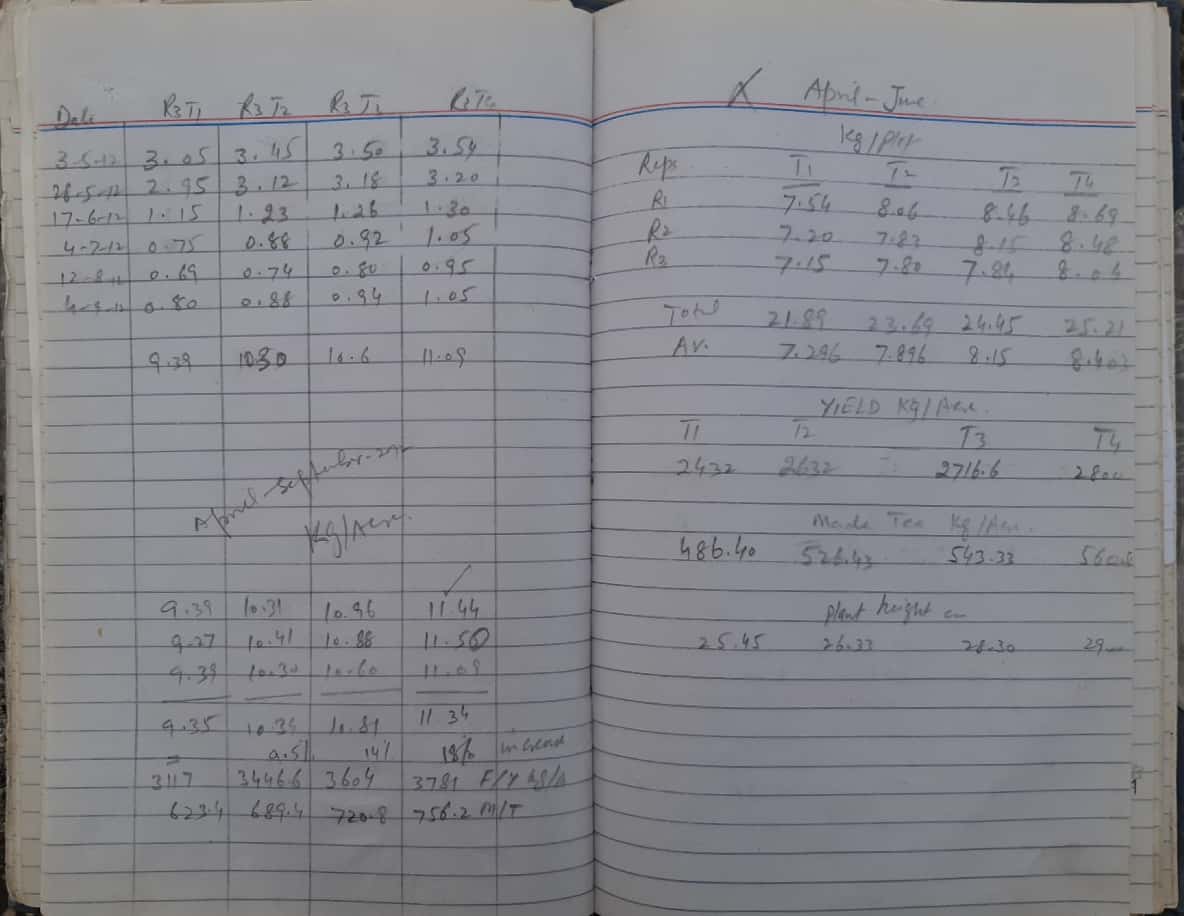 Date R3T1 R3T2 R3T3 R3T4
3-5-12 3.05 3.45 3.50 3.54
28-5-12 2.95 3.12 3.18 3.20
17-6-12 1.15 1.23 1.26 1.30
4-7-12 0.75 0.88 0.92 1.05
12-8-12 0.69 0.74 0.80 0.95
4-9-12 0.80 0.88 0.94 1.05
9.39 10.30 10.6 11.09
April-September-2012
Kg/Acre.
9.39 10.31 10.96 11.44
9.27 10.41 10.88 11.50
9.39 10.30 10.60 11.09
9.35 10.34 10.81 11.34
9.5% 14% 18% increase
3117 3446.6 3604 3781 F/Y kg/A
623.4 689.4 720.8 756.2 M/T
X April-June
Kg/Plot
Reps T1 T2 T3 T4
R1 7.54 8.06 8.46 8.69
R2 7.20 7.83 8.15 8.48
R3 7.15 7.80 7.84 8.04
Total 21.89 23.69 24.45 25.21
Av. 7.296 7.896 8.15 8.403
YIELD Kg/Acre.
T1 T2 T3 T4
2432 2632 2716.6 2800
Made Tea Kg/Acre.
486.40 526.43 543.33
Plant height cm
25.45 26.33 28.30